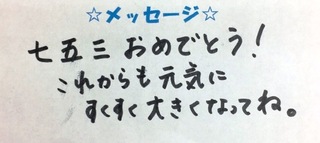 ☆メッセージ☆
七五三 おめでとう!
これからも 元気に
すくすく 大きくなってね。